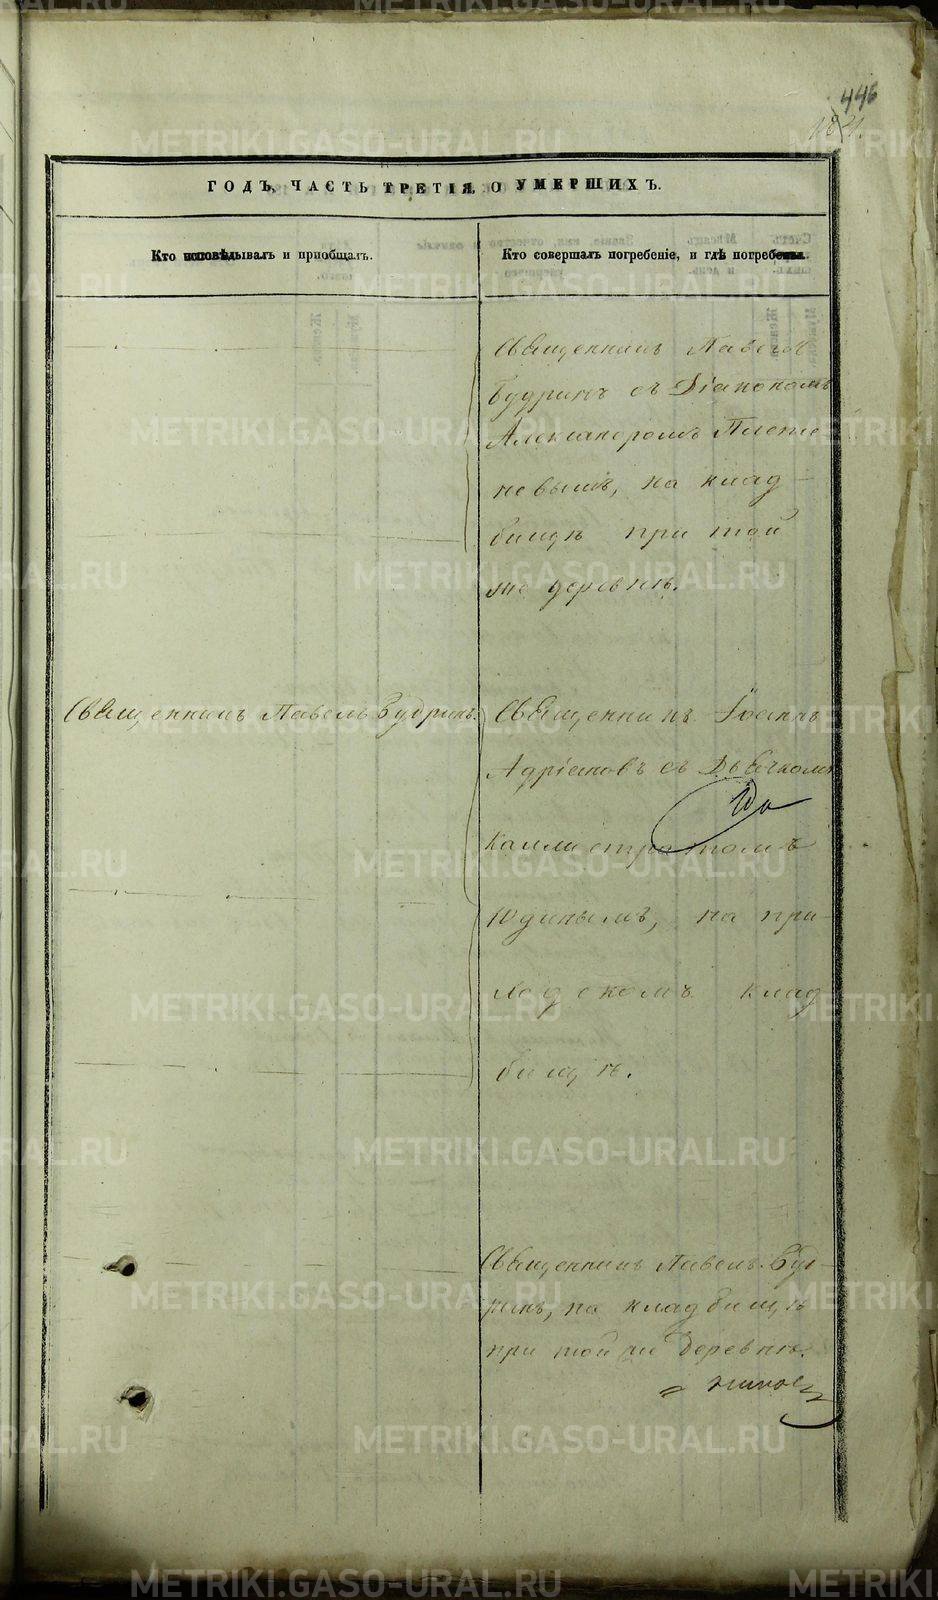 446
ГОДЪ, ЧАСТЬ ТРЕТІЯ, О УМЕРШИХЪ.
Кто исповѣдывалъ и пріобщалъ.
Кто совершалъ погребеніе, и гдѣ погребены.
Священникъ Павелъ
Будринъ съ Діакономъ
Александромъ Плотни
новымъ, на клад-
бищѣ при той
же деревнѣ.
Священникъ Павелъ Будринъ.
Священникъ Іоаннъ
Адріановъ съ Дьячкомъ
Каллистратомъ
Юдинымъ, на при-
ходскомъ клад
бищѣ.
Священникъ Павелъ Буд-
ринъ, на кладбищѣ
при той же деревнѣ.
METRIKI.GASO-URAL.RU